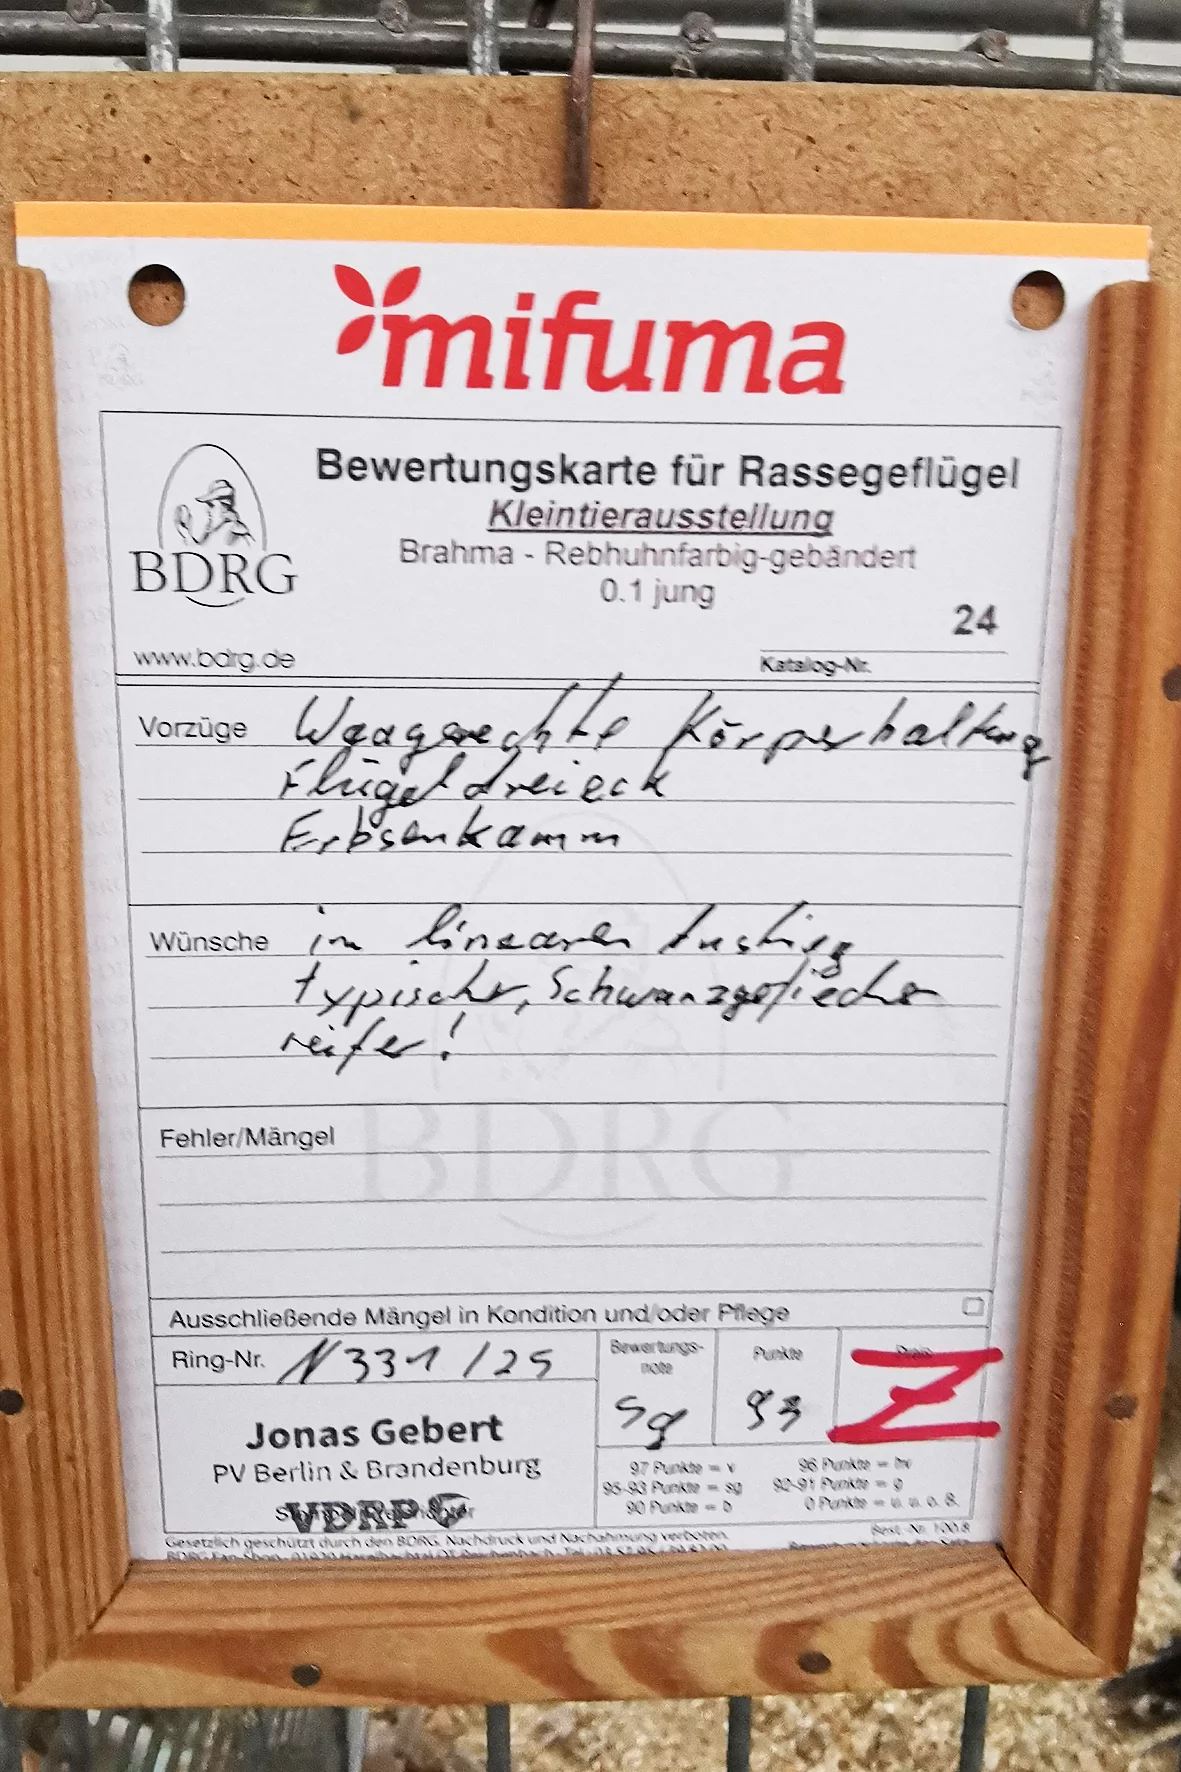 mifuma
Bewertungskarte für Rassegeflügel
Kleintierausstellung
Brahma - Rebhuhnfarbig-gebändert
0.1 jung
BDRG
24
www.bdrg.de
Katalog-Nr.
Vorzüge Waagerechte Körperhaltung
Flügeldreieck
Erbsenkamm
Wünsche im linearen Anstieg
typischer, Schwanzgefieder
reifer!
BDRG
Fehler/Mängel
Ausschließende Mängel in Kondition und/oder Pflege
Ring-Nr. N 331 / 25
Bewertungs-
note
Punkte
Preis
sg 93 Z
Jonas Gebert
PV Berlin & Brandenburg
VDRP
97 Punkte = v 96 Punkte = hv
95-93 Punkte = sg 92-91 Punkte = g
90 Punkte = b 0 Punkte = u. u. o. B.
Gesetzlich geschützt durch den BDRG. Nachdruck und Nachahmung verboten.
Best.-Nr. 100.8